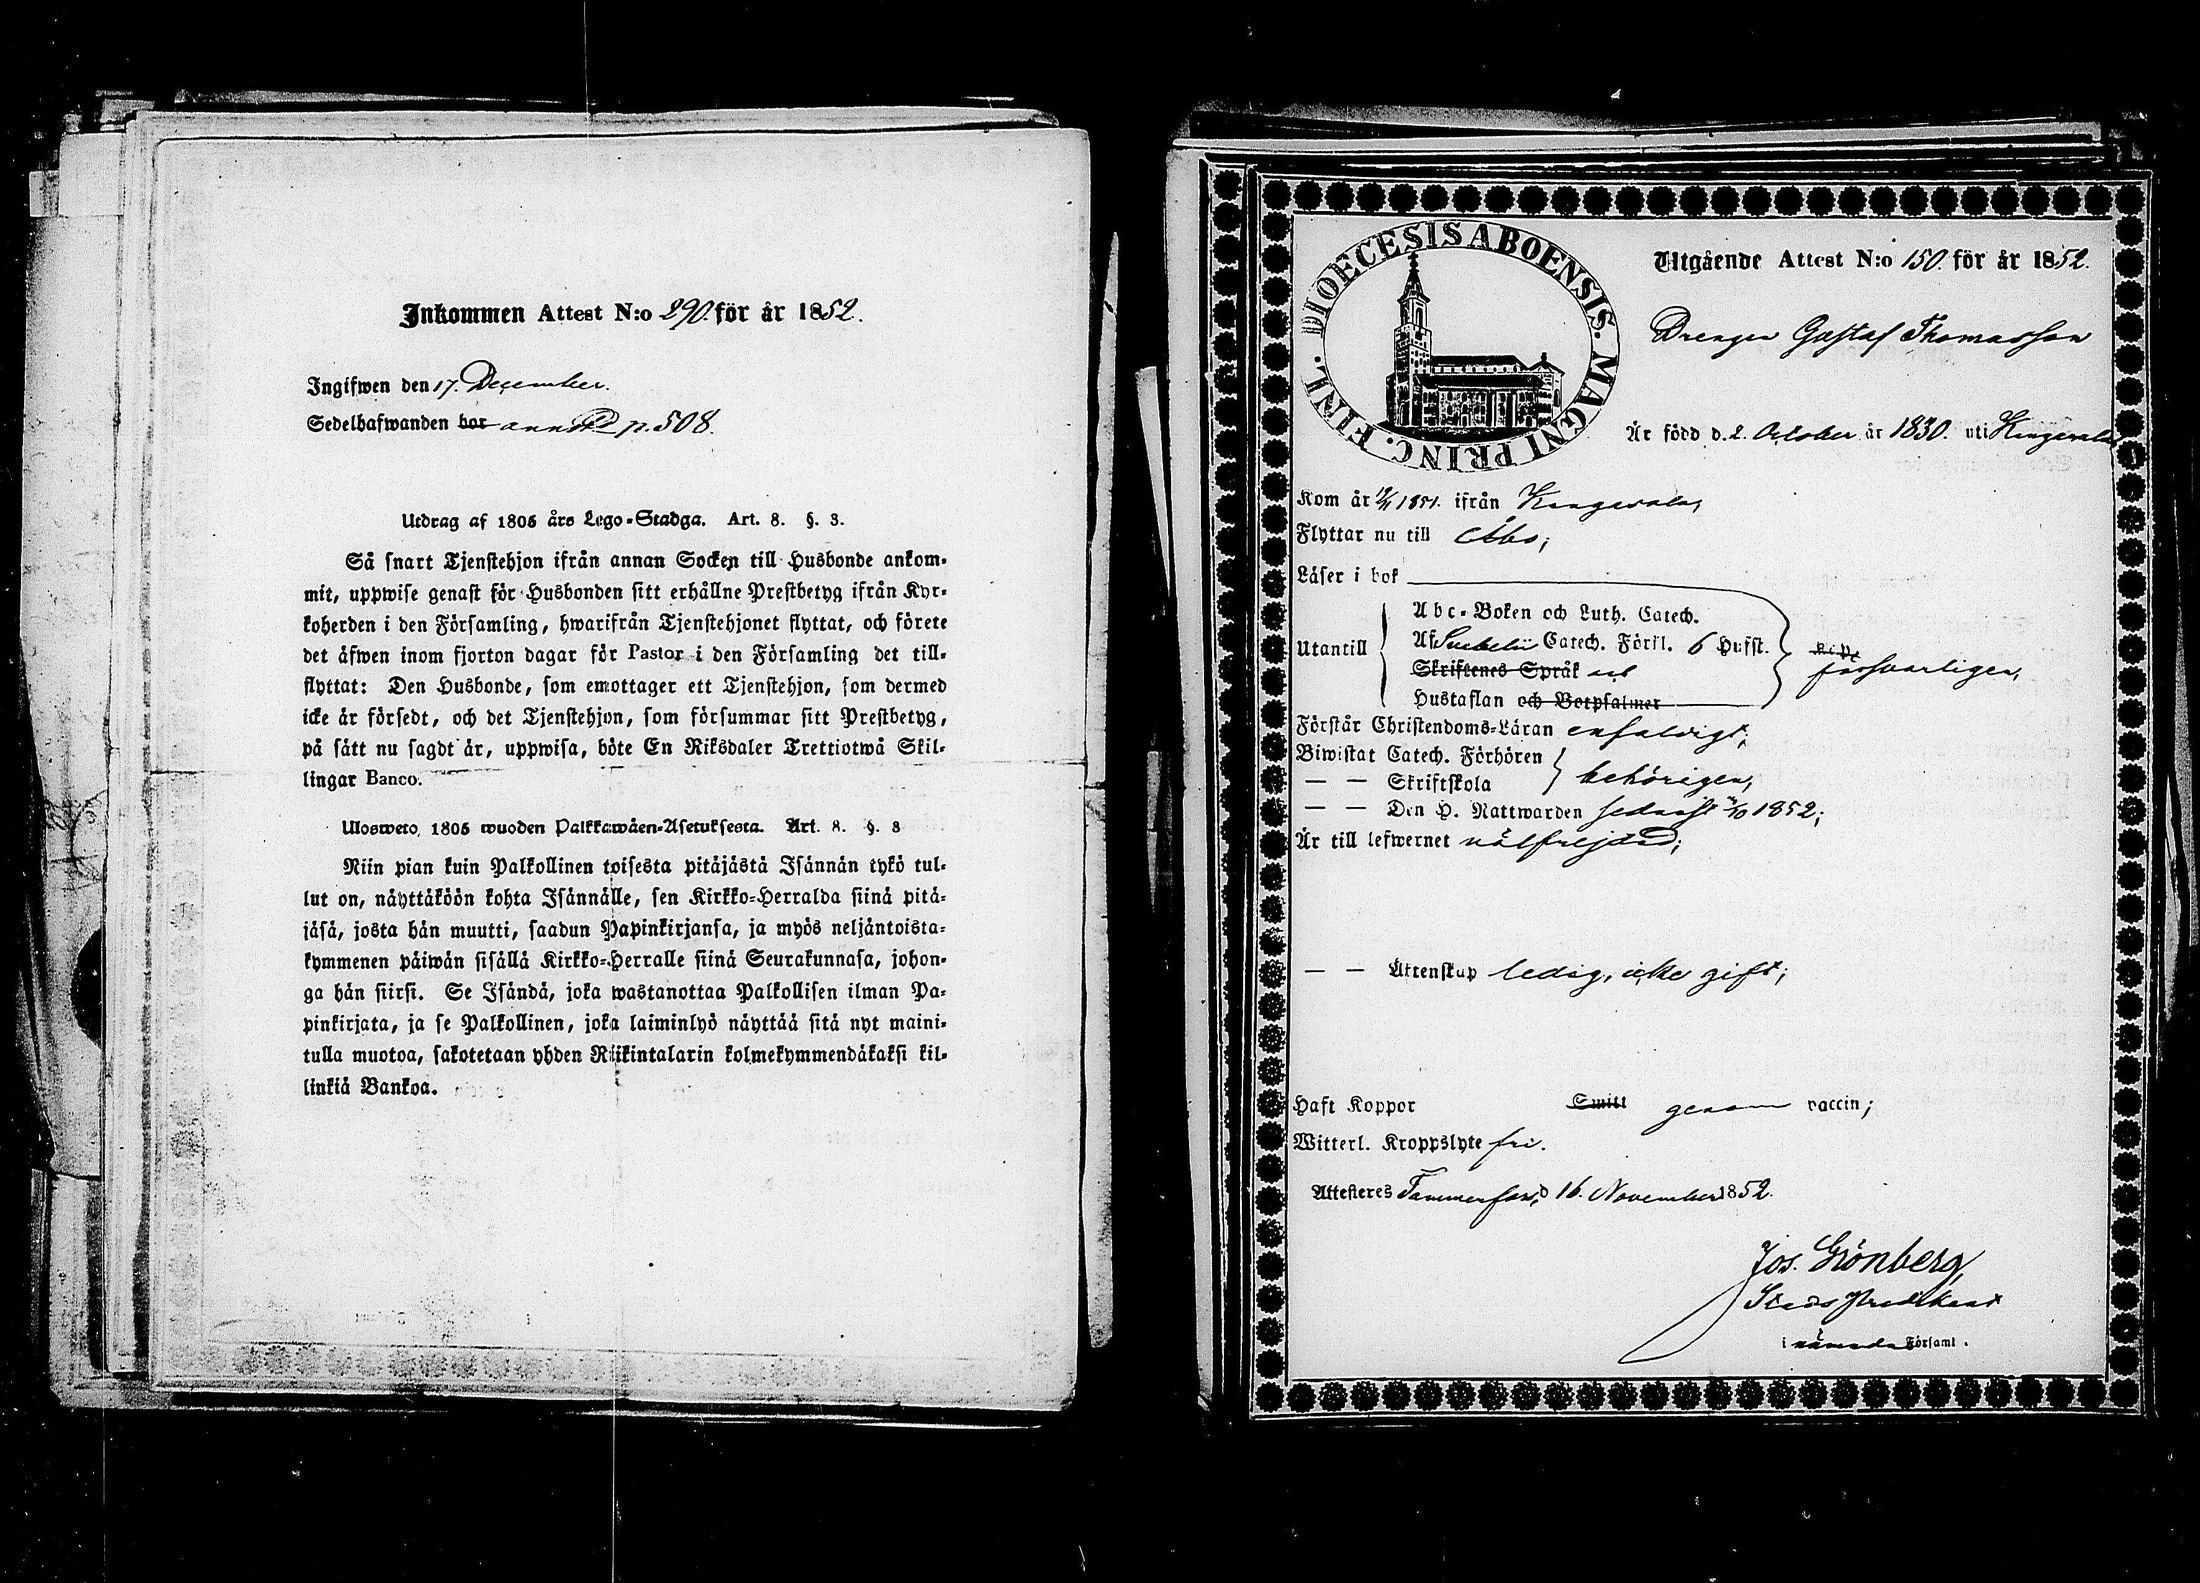 Inkommen Attest N:o 290. för år 1852.
Ingifwen den 17. December.
Sedelhafwanden bor p. 508.
Utdrag af 1805 års Lego-Stadga. Art. 8. §. 3.
Så snart Tjenstehjon ifrån annan Socken till Husbonde ankom-
mit, uppwise genast för Husbonden sitt erhållne Prestbetyg ifrån Kyr-
koherden i den Församling, hwarifrån Tjenstehjonet flyttat, och förete
det äfwen inom fjorton dagar för Pastor i den Församling det till-
flyttat: Den Husbonde, som emottager ett Tjenstehjon, som dermed
icke är försedt, och det Tjenstehjon, som försummar sitt Prestbetyg,
på sätt nu sagdt är, uppwisa, böte En Riksdaler Trettiotwå Skil-
lingar Banco.
Ulosweto, 1805 wuoden Palkkawäen-Asetuksesta. Art. 8. §. 3
Niin pian kuin Palkollinen toisesta pitäjästä Isännän tykö tul-
lut on, näyttäköön kohta Isännälle, sen Kirkko-Herralda siinä pitä-
jäsä, josta hän muutti, saadun Papinkirjansa, ja myös neljäntoista-
kymmenen päiwän sisällä Kirkko-Herralle siinä Seurakunnasa, johon-
ga hän siirsi. Se Isändä, joka wastanottaa Palkollisen ilman Pa-
pinkirjata, ja se Palkollinen, joka laiminlyö näyttää sitä nyt maini-
tulla muotoa, sakotetaan yhden Riikintalarin kolmekymmendäkaksi kil-
linkiä Bankoa.
DIOECESIS ABOENSIS. MAGNI PRINC. FINL.
Utgående Attest N:o 150. för år 1852.
Drengen Gustaf Thomasson
Är född d. 2. October år 1830. uti Kangasala
Kom år 1851. ifrån Kangasala,
Flyttar nu till Åbo;
Läser i bok
Abc-Boken och Luth. Catech.
Utantill Af Svebelii Catech. Förkl. 6 Hufst. försvarligen,
Skriftenes Språk och
Hustaflan och Botpsalmer
Förstår Christendoms-Läran enfaldigt;
Biwistat Catech. Förhören
— — Skriftskola behörigen,
— — Den H. Nattwarden sednast /10 1852;
Är till lefwernet välfrejdad;
— — Äktenskap ledig, icke gift;
Haft Koppor Smitt genom vaccin;
Witterl. Kroppslyte fri.
Attesteres Tammerfors, d 16. November 1852.
Jos. Grönberg,
Stads Predikant
i nämnda Församl.